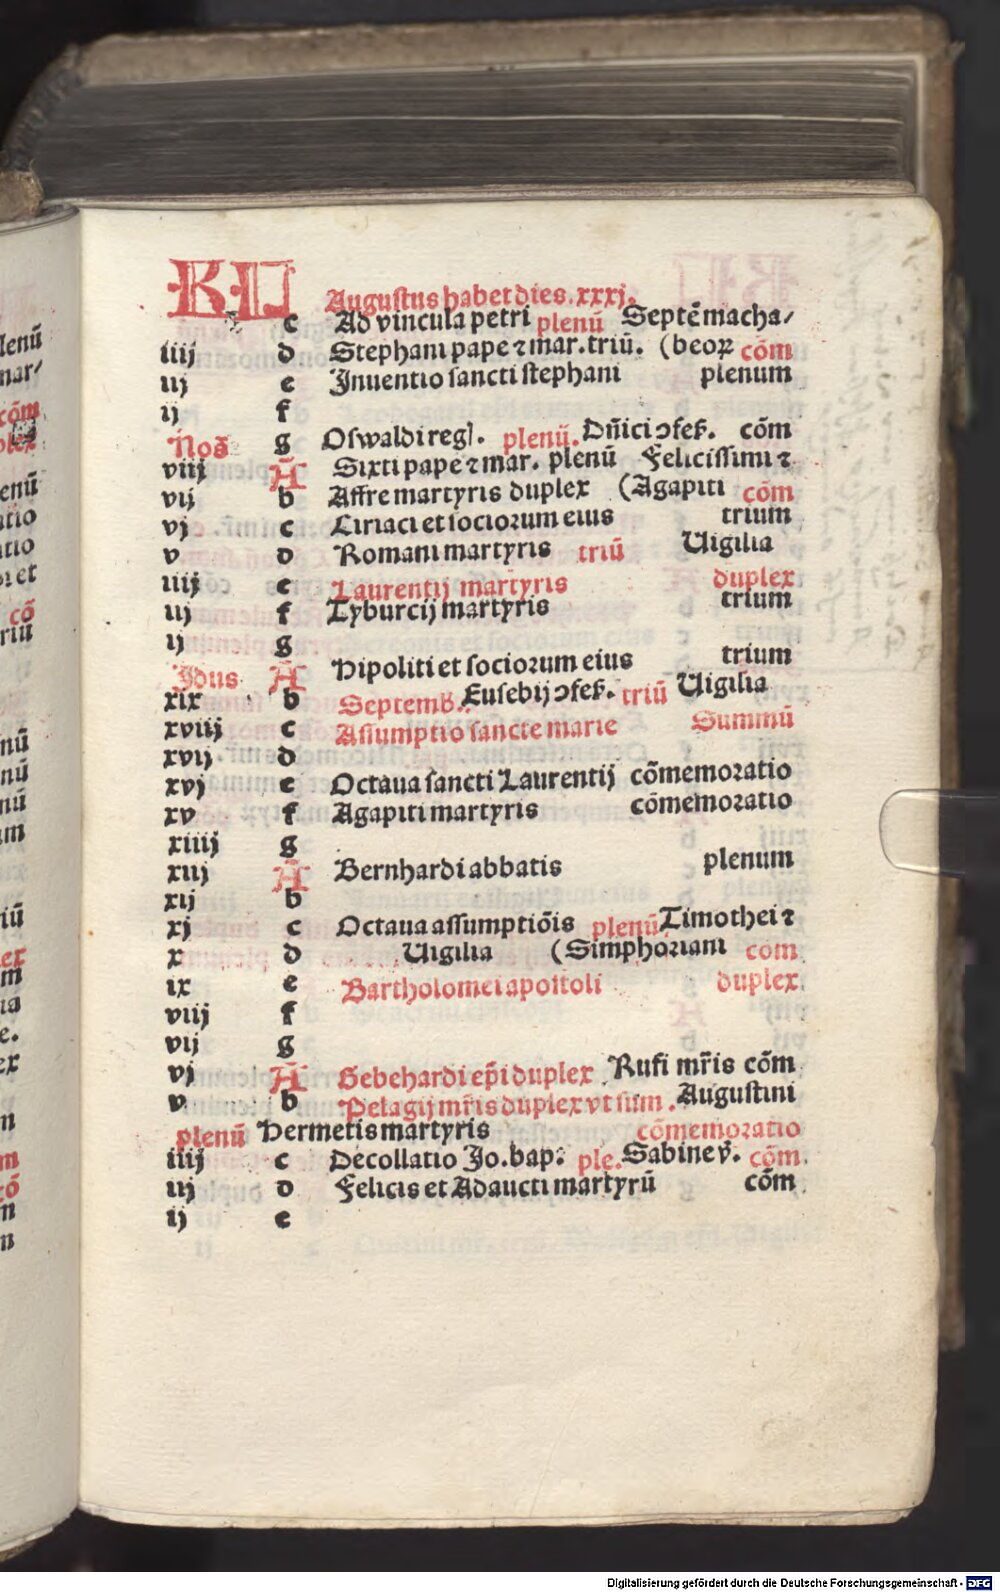 KL Augustus habet dies.xxxj.
c Ad vincula petri plenū Septē macha/
iiij d Stephani pape ⁊ mar. triū. (beoꝝ cōm
iij e Inuentio sancti stephani plenum
ij f
Noñ g Oswaldi regl. plenū. Dñici ɔfeſ. cōm
viij A Sixti pape ⁊ mar. plenū Felicissimi ⁊
vij b Affre martyris duplex (Agapiti cōm
vj c Ciriaci et socioꝛum eius trium
v d Romani martyris triū Uigilia
iiij e Laurentij martyris duplex
iij f Tyburcij martyris trium
ij g
Idus A Hipoliti et socioꝛum eius trium
xix b Septemb. Eusebij ɔfeſ. triū Uigilia
xviij c Assumptio sancte marie Summū
xvij d
xvj e Octaua sancti Laurentij cōmemoꝛatio
xv f Agapiti martyris cōmemoꝛatio
xiiij g
xiij A Bernhardi abbatis plenum
xij b
xj c Octaua assumptiōis plenū Timothei ⁊
x d Uigilia (Simphoꝛiani com
ix e Bartholomei apostoli duplex
viij f
vij g
vj A Gebehardi ep̄i duplex Rufi mr̄is cōm
v b Pelagij mr̄is duplex vt sum. Augustini
plenū Hermetis martyris cōmemoꝛatio
iiij c Decollatio Jo. bap. ple. Sabine v̄. cōm.
iij d Felicis et Adaucti martyrū cōm
ij e
Digitalisierung gefördert durch die Deutsche Forschungsgemeinschaft - DFG